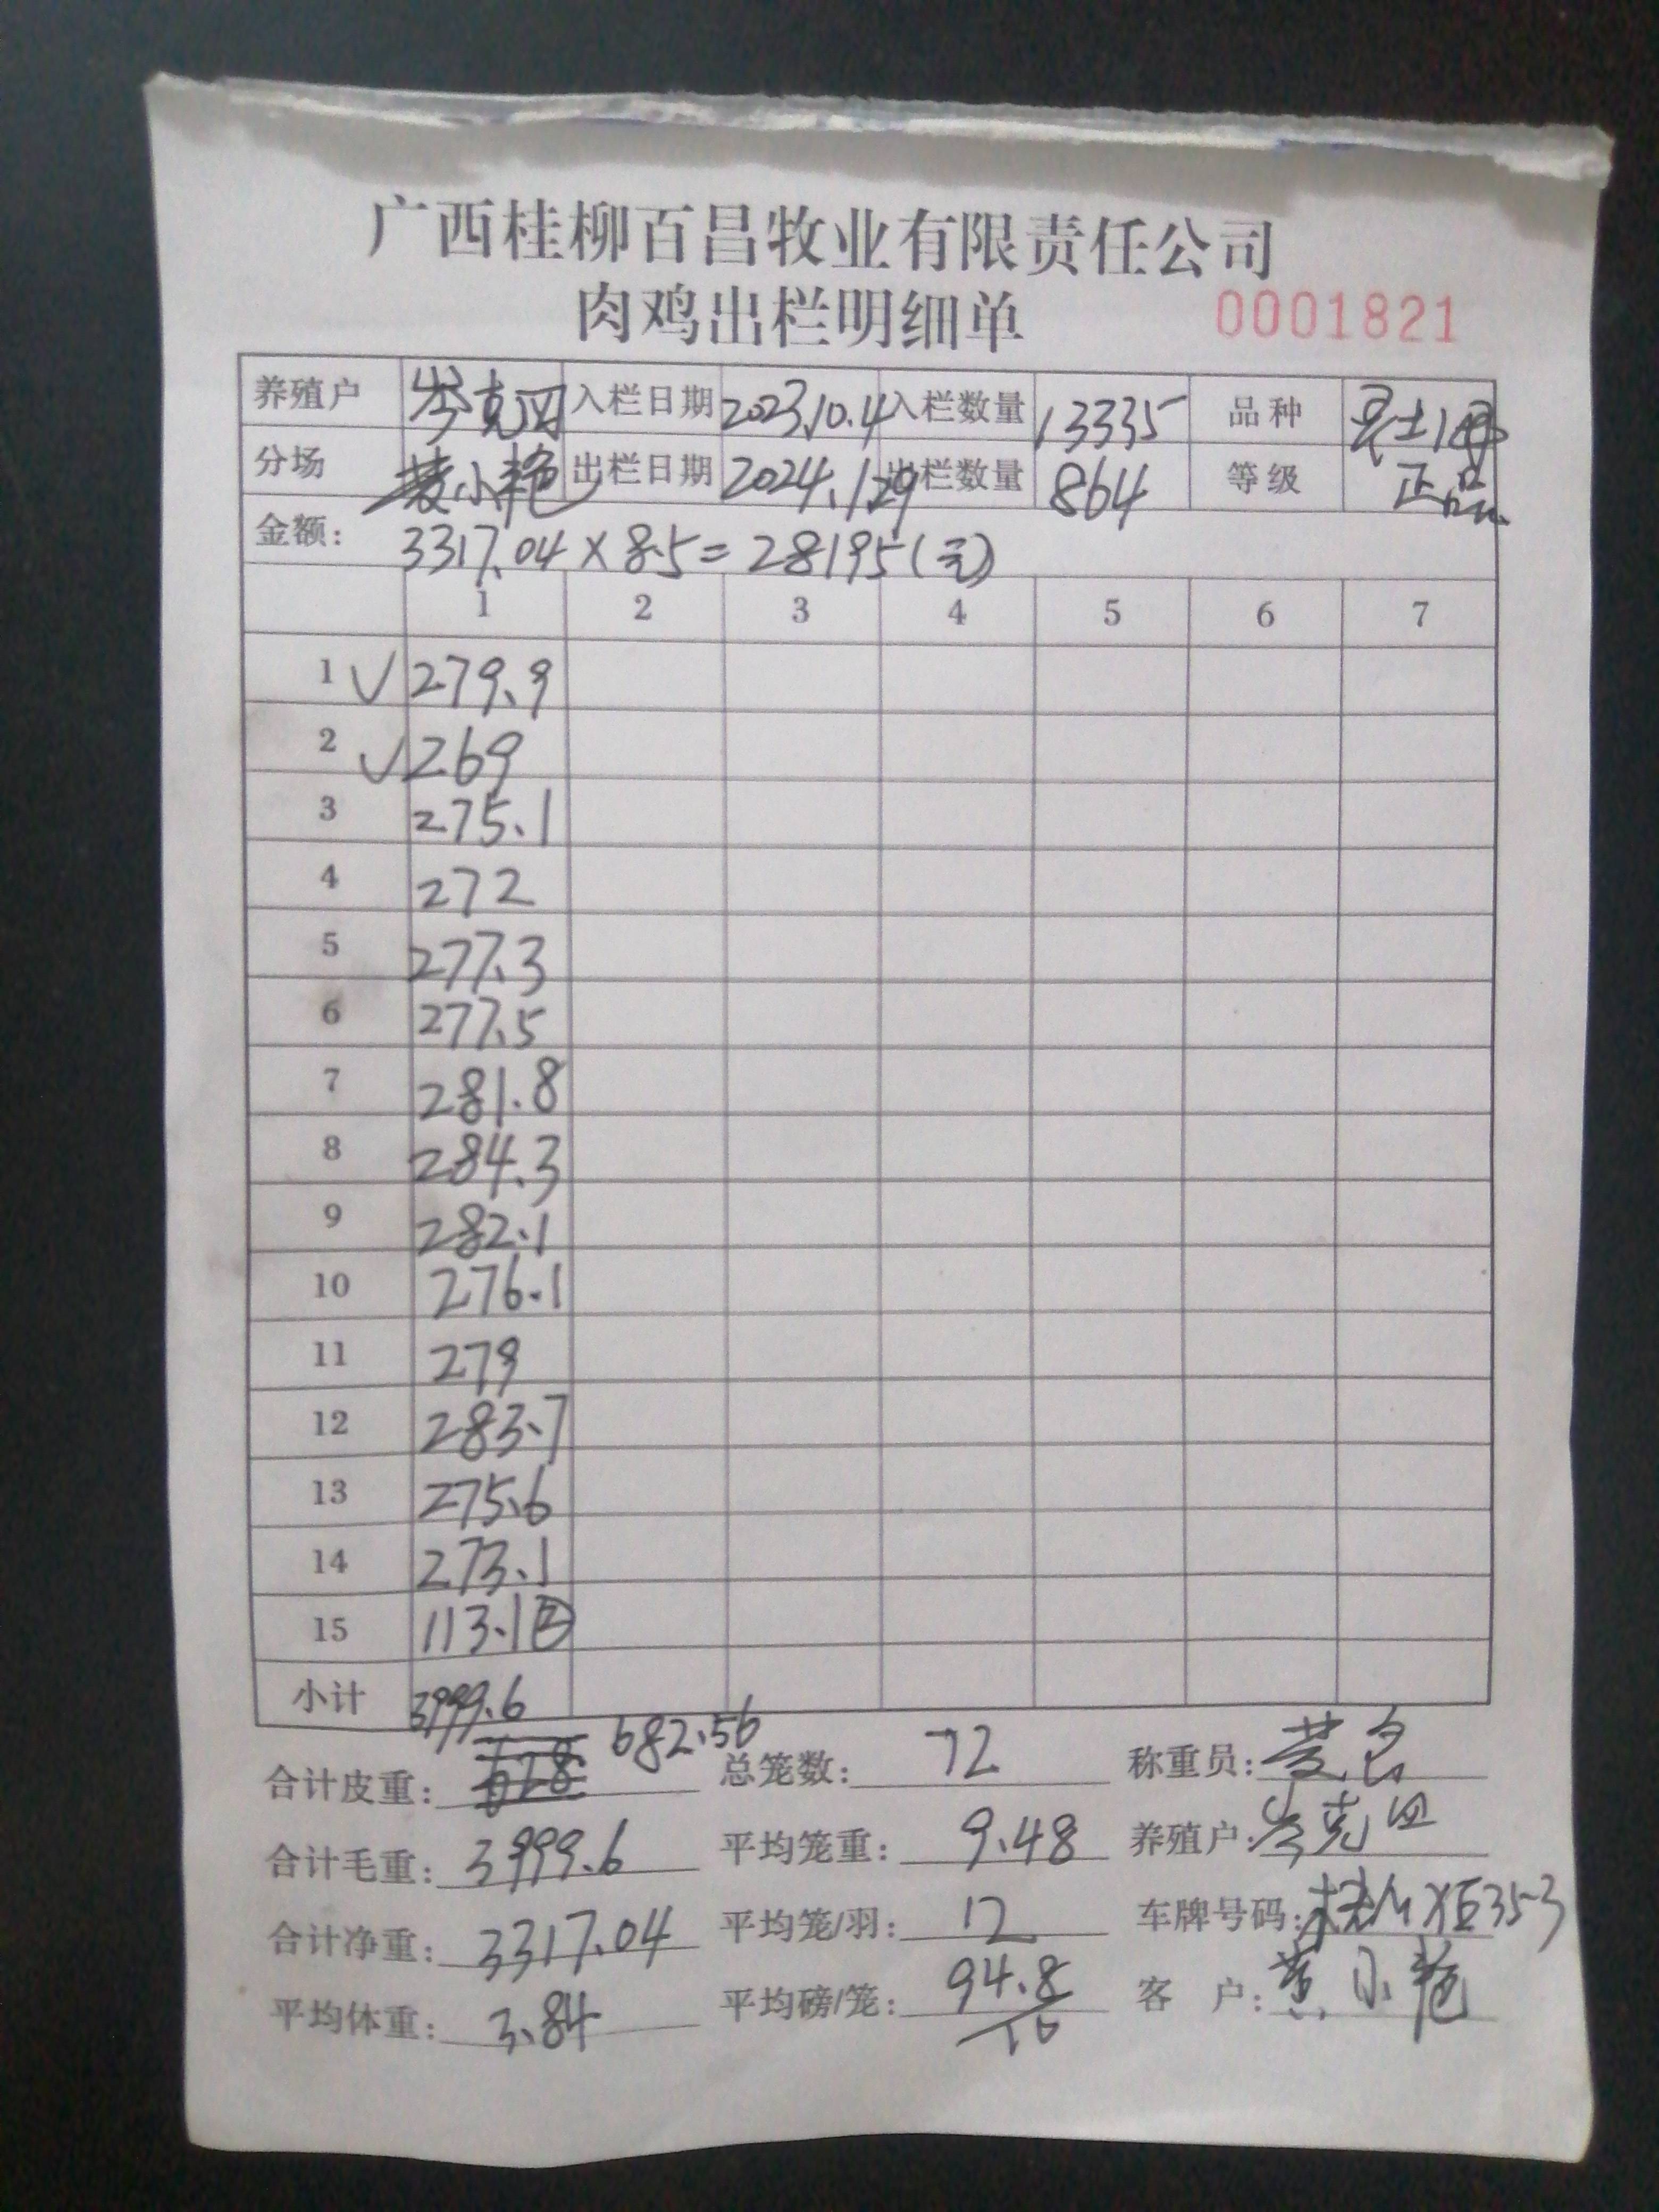 广西桂柳百昌牧业有限责任公司
肉鸡出栏明细单 0001821
养殖户 岑克四 入栏日期 2023.10.4 入栏数量 13335 品种
分场 黄小艳 出栏日期 2024.1.29 出栏数量 864 等级 正品
金额: 3317.04×8.5=28195(元)
1 2 3 4 5 6 7
1 √ 279.9
2 √ 269
3 275.1
4 272
5 277.3
6 277.5
7 281.8
8 284.3
9 282.1
10 276.1
11 279
12 283.7
13 275.6
14 273.1
15 113.1②
小计 3999.6
合计皮重: 682.56 总笼数: 72 称重员:
合计毛重: 3999.6 平均笼重: 9.48 养殖户: 岑克四
合计净重: 3317.04 平均笼/羽: 12 车牌号码:
平均体重: 3.84 平均磅/笼: 94.8/10 客 户: 黄小艳